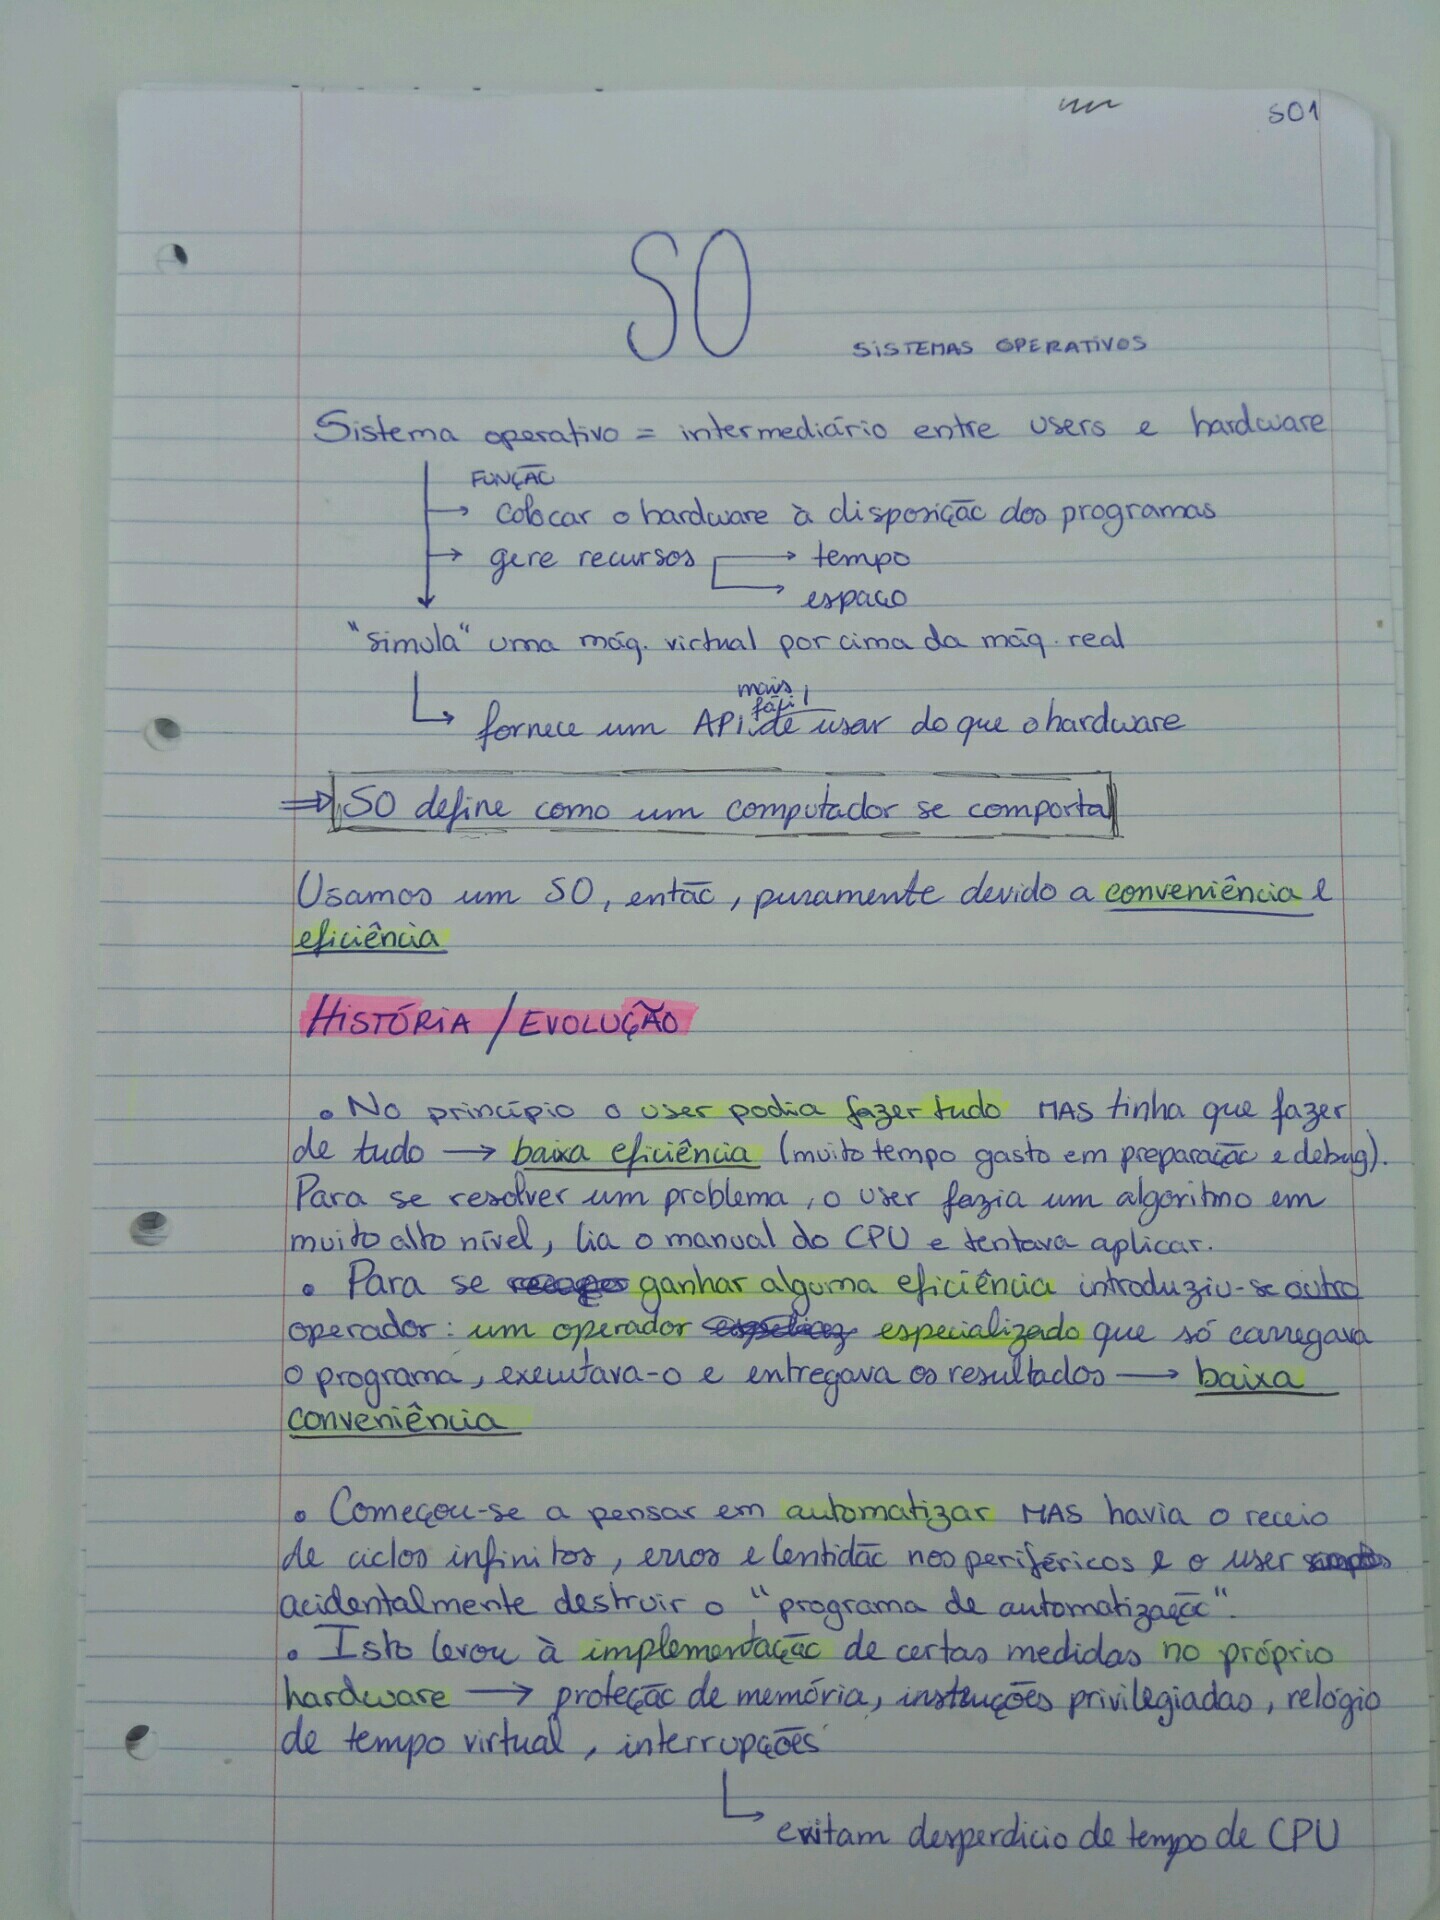 SO1
SO
SISTEMAS OPERATIVOS
Sistema operativo = intermediário entre users e hardware
FUNÇÃO
→ colocar o hardware à disposição dos programas
→ gere recursos → tempo
→ espaço
"simula" uma máq. virtual por cima da máq. real
mais
fácil
→ fornece um API de usar do que o hardware
⇒ SO define como um computador se comporta
Usamos um SO, então, puramente devido a conveniência e
eficiência
HISTÓRIA / EVOLUÇÃO
• No princípio o user podia fazer tudo MAS tinha que fazer
de tudo → baixa eficiência (muito tempo gasto em preparação e debug).
Para se resolver um problema, o user fazia um algoritmo em
muito alto nível, lia o manual do CPU e tentava aplicar.
• Para se ganhar alguma eficiência introduziu-se outro
operador: um operador especializado que só carregava
o programa, executava-o e entregava os resultados → baixa
conveniência
• Começou-se a pensar em automatizar MAS havia o receio
de ciclos infinitos, erros e lentidão nos periféricos e o user
acidentalmente destruir o "programa de automatização".
• Isto levou à implementação de certas medidas no próprio
hardware → proteção de memória, instruções privilegiadas, relógio
de tempo virtual, interrupções
→ evitam desperdicio de tempo de CPU